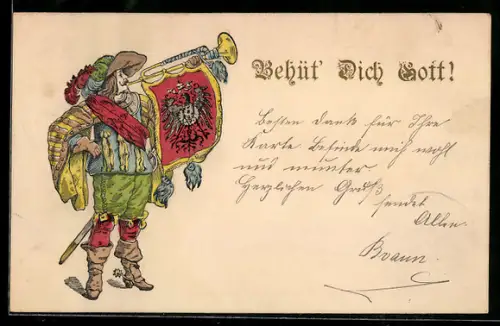 Behüt' Dich Gott!
Besten Dank für Ihre
Karte Befinde mich wohl
und munter.
Herzlichen Gruß
sendet
Allen
Braun.